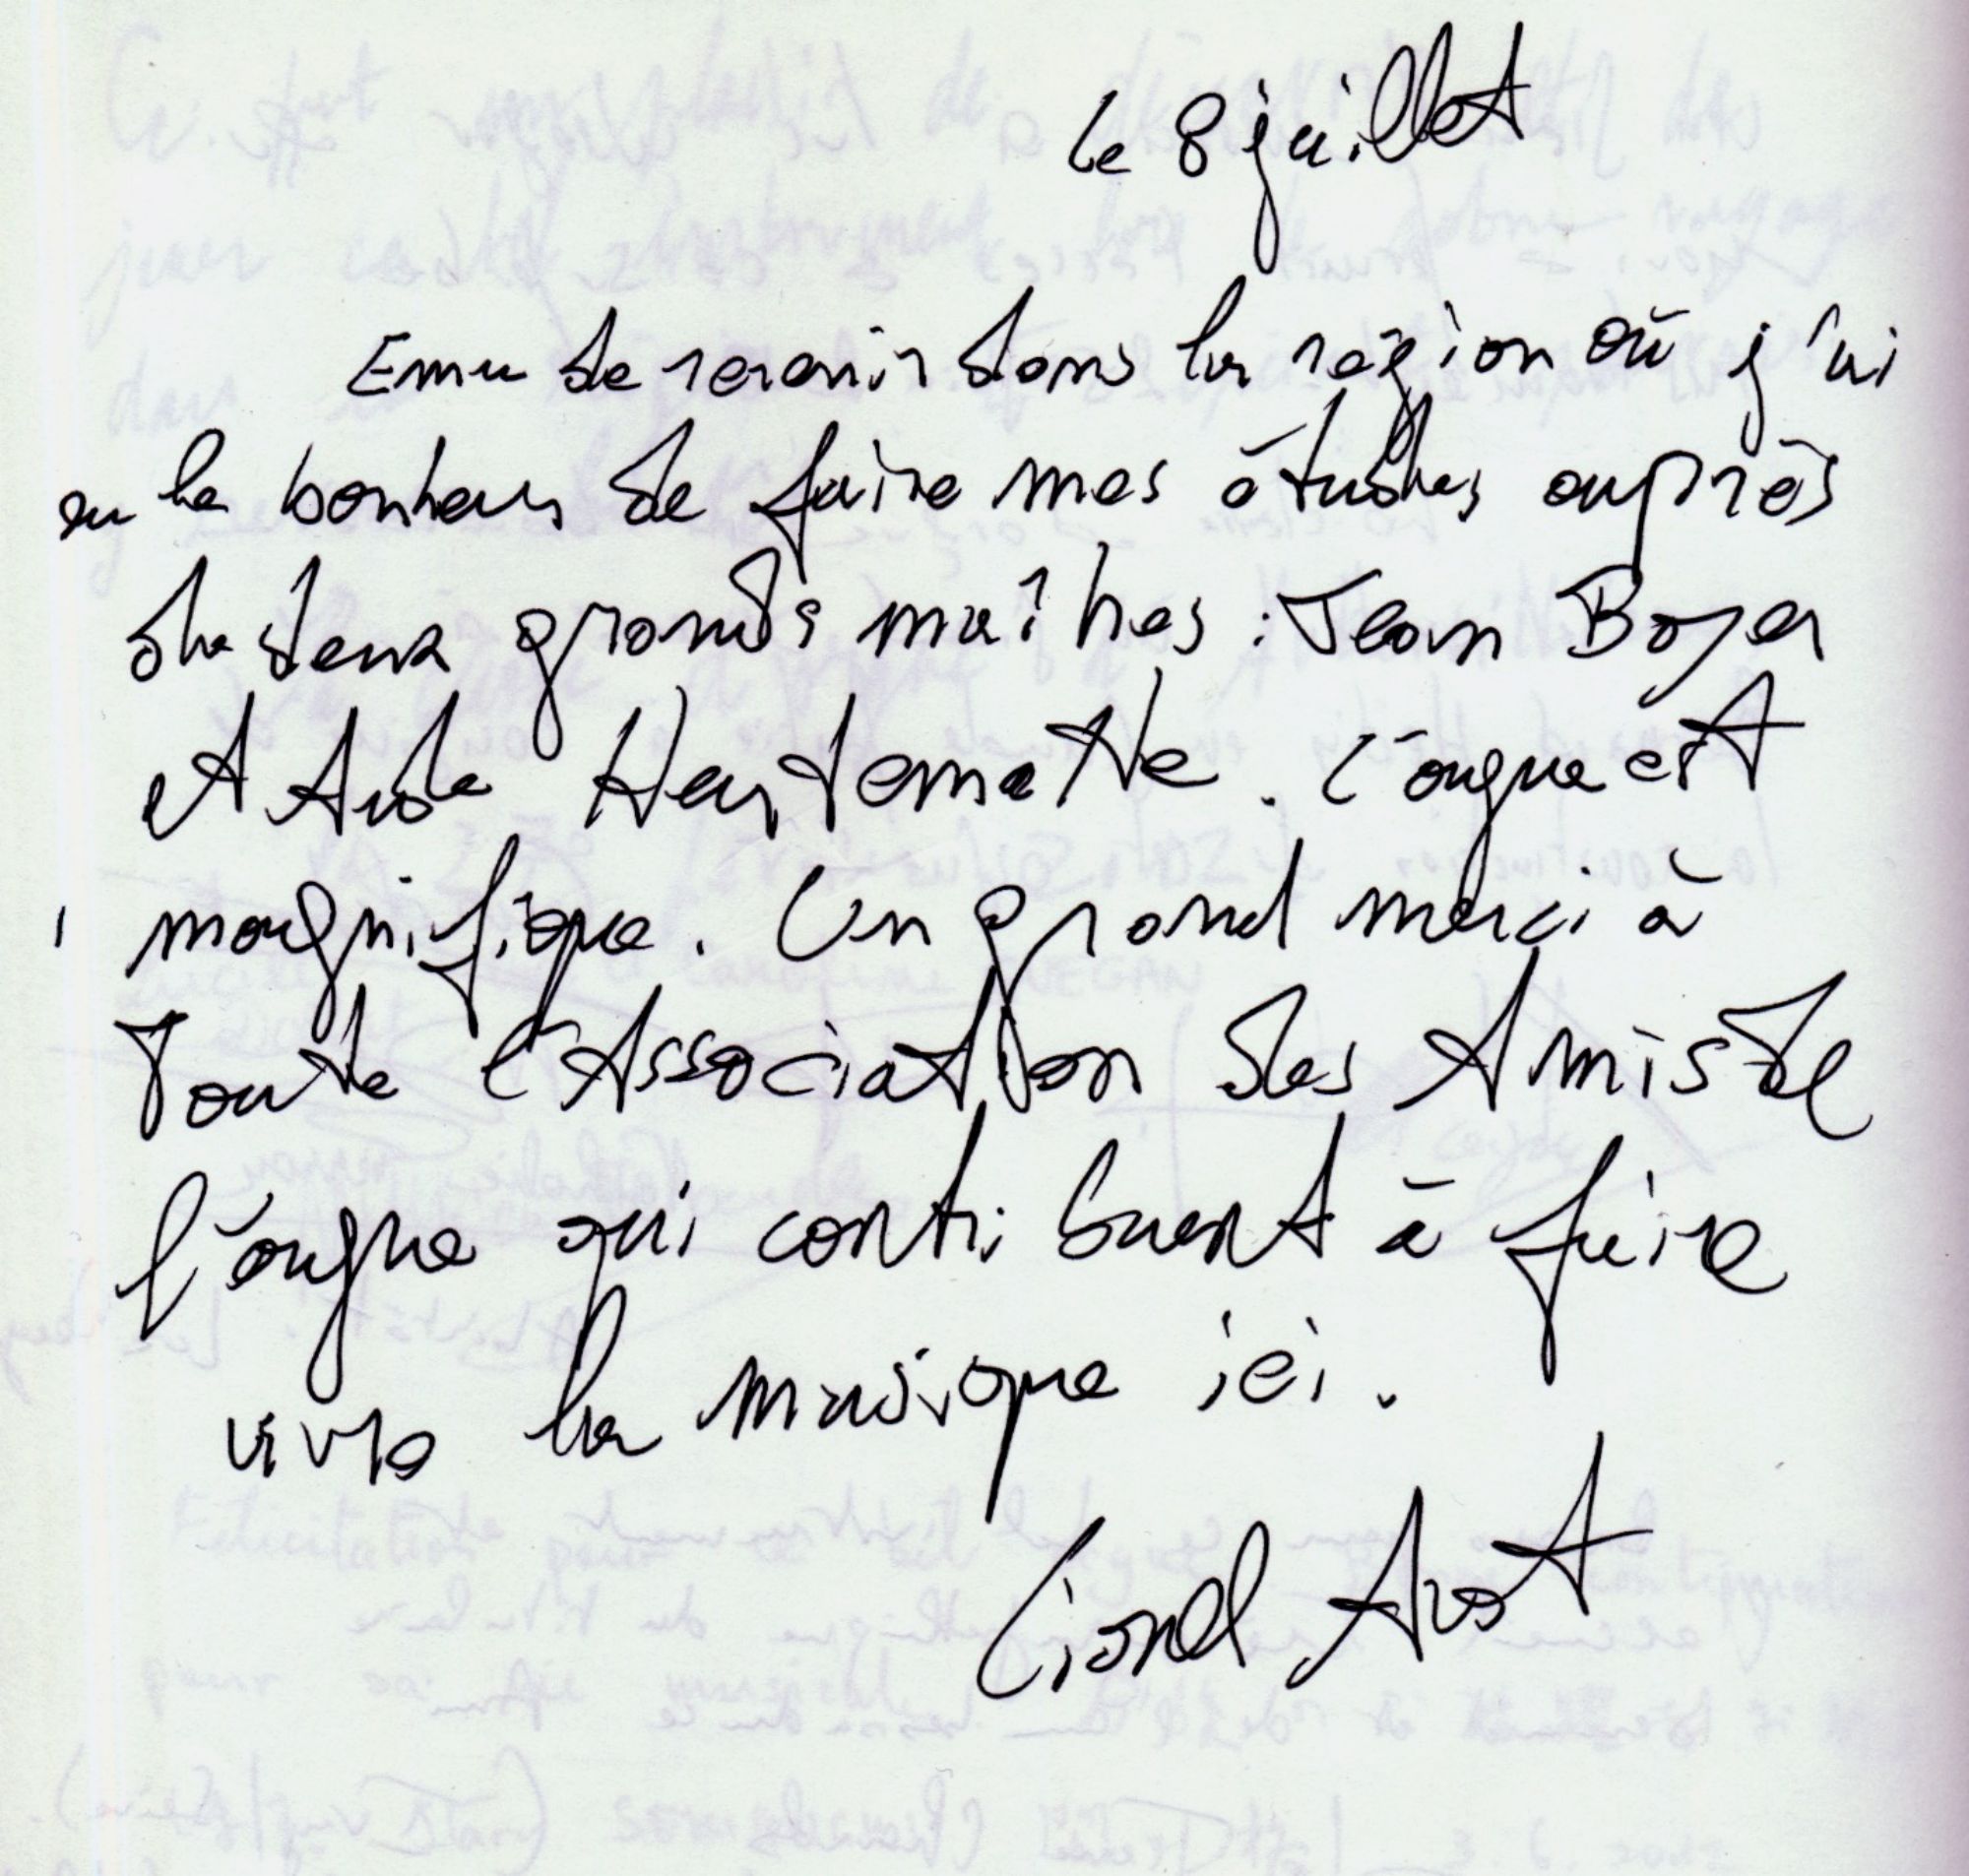 le 8 juillet
Emu de revenir dans la région où j'ai
eu le bonheur de faire mes études auprès
de deux grands maîtres : Jean Boyer
et Aude Heurtematte. L'orgue est
magnifique. Un grand merci à
toute l'Association des Amis de
l'orgue qui contribuent à faire
vivre la musique ici.
Lionel Avot